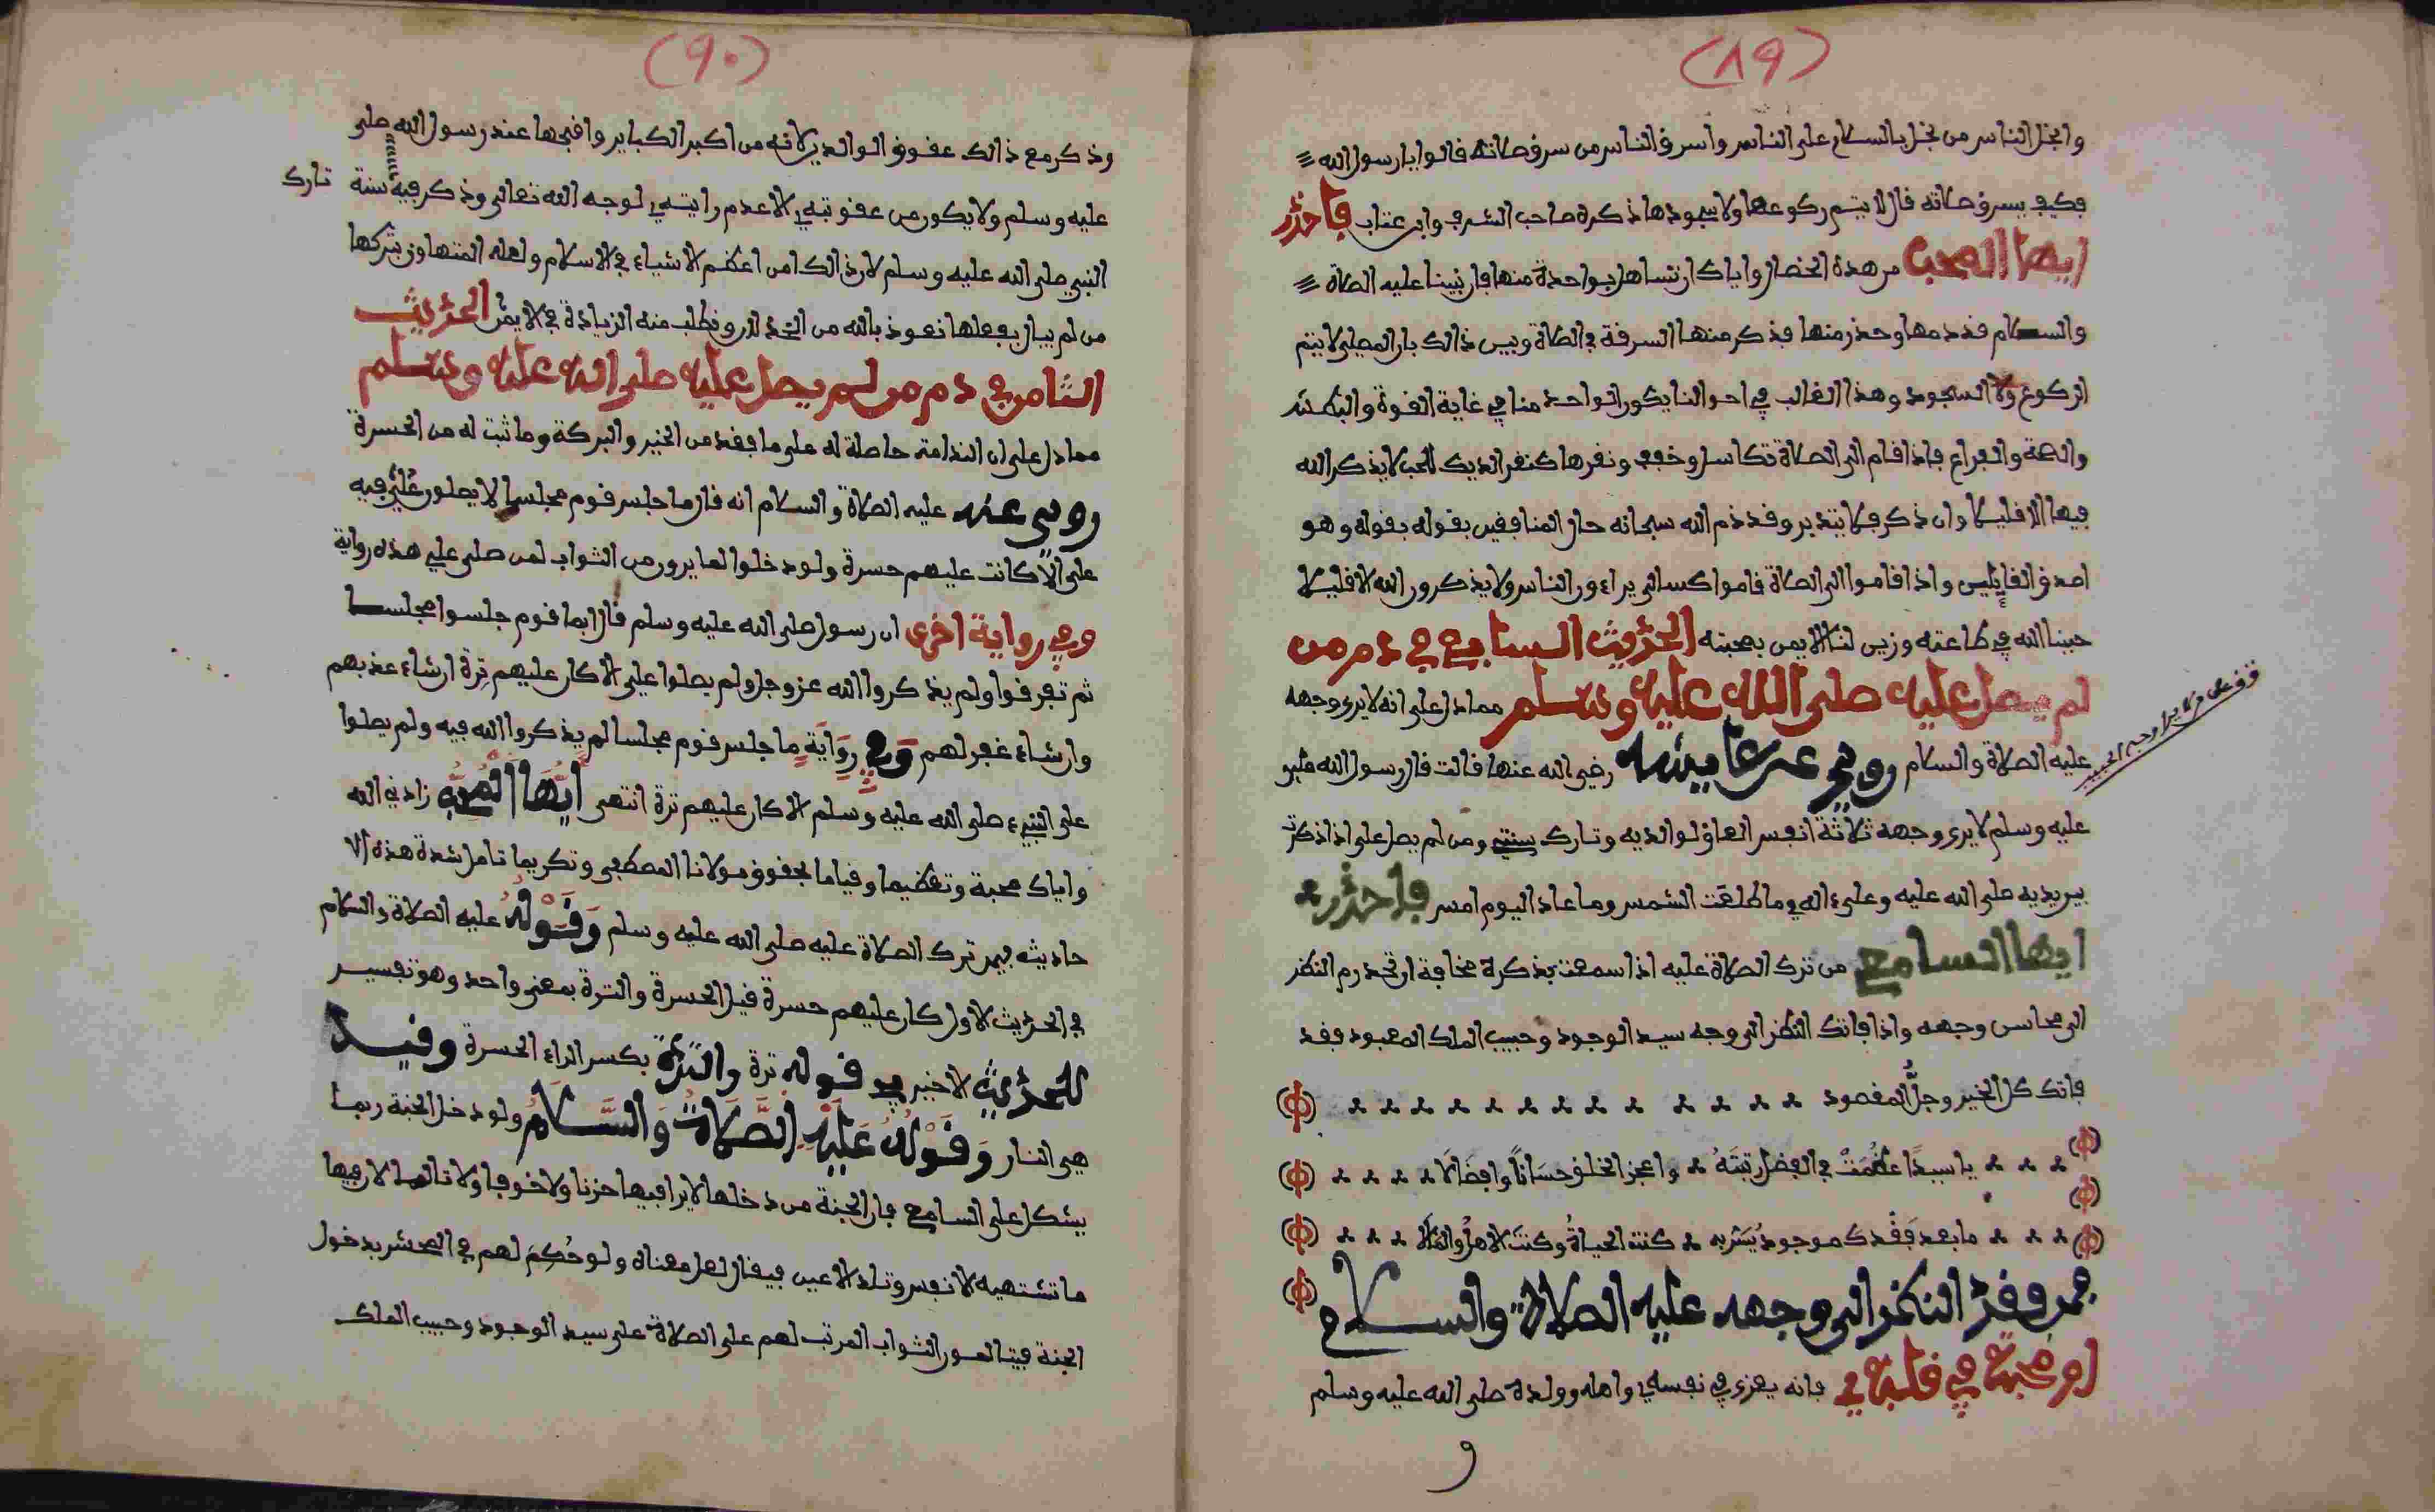 (٨٩)
وابخل الناس من بخل بالسلام على الناس واسرق الناس من سرق صلاته قالوا يا رسول الله
فكيف يسرق صلاته قال لا يتم ركوعها ولا سجودها ذكره صاحب الشرف وابن عتاب فاحذر
ايها المحب من هذه الخصال واياك ان تتساهل بواحدة منها فان نبينا عليه الصلاة
والسلام قد ذمها وحذر منها فذكر منها السرقة في الصلاة وبين ذالك بان المصلي لا يتم
الركوع ولا السجود وهذا الغالب في احوالنا يكون الواحد منا في غاية القوة والبطش
والصحة والفراغ فاذا قام الى الصلاة تكاسل وخفف ونقرها كنقر الديك للحب لا يذكر الله
فيها الا قليلا وان ذكر فلا يتدبر وقد ذم الله سبحانه حال المنافقين بقوله بقوله وهو
اصدق القايلين واذا قاموا الى الصلاة قاموا كسالى يراءون الناس ولا يذكرون الله الا قليلا
حببنا الله في طاعته وزين لنا الايمن بمحبته الحديث السابع في ذم من
لم يصل عليه صلى الله عليه وسلم مما دل على انه لا يرى وجهه
قف على من لا يرا وجه الحبيب
عليه الصلاة والسلام روي عن عايشه رضي الله عنها قالت قال رسول الله صلى
عليه وسلم لا يرى وجهه ثلاثة انفس العاق لوالديه وتارك سنتي ومن لم يصل علي اذا ذكرت
بين يديه صلى الله عليه وعلى ءاله وما طلعت الشمس وما عاد اليوم امس فاحذر
ايها السامع من ترك الصلاة عليه اذا سمعت بذكره مخافة ان تحذرم النظر
الى محاسن وجهه واذا فاتك النظر الى وجه سيد الوجود وحبيب الملك المعبود فقد
فاتك كل الخير وجل المقصود
يا سيدا عظمت في الفضل رتبته واعجز الخلق حسانا وافضالا
ما بعد فقدك موجود يسر به كنت الحياة وكنت الاهل والمالا
فمن فقد النظر الى وجهه عليه الصلاة والسلام
او محبته في قلبه فانه يعزى في نفسه واهله وولده صلى الله عليه وسلم
و
(٩٠)
وذكر مع ذالك عقوق الوالدين لانه من اكبر الكباير واقبحها عند رسول الله صلى
عليه وسلم ولا يكون من عقوقه الا عدم رايته لوجه الله تعالى وذكر فيه سنة تارك
النبي صلى الله عليه وسلم لان ذالك من اعظم الاشياء في الاسلام ولعله المتهاون بتركها
من لم يبال بفعلها نعوذ بالله من الخذلان ونطلب منه الزيادة في الايمن الحديث
الثامن في ذم من لم يصل عليه صلى الله عليه وسلم
مما دل على ان الندامة حاصلة له على ما فقد من الخير والبركة وما ثبت له من الحسرة
روي عنه عليه الصلاة والسلام انه قال ما جلس قوم مجلسا لا يصلون علي فيه
على الا كانت عليهم حسرة ولو دخلوا لما يرون من الثواب لمن صلى علي هذه رواية
وفي رواية اخرى ان رسول صلى الله عليه وسلم قال ايما قوم جلسوا مجلسا
ثم تفرقوا ولم يذكروا الله عز وجل ولم يصلوا علي الا كان عليهم ترة ان شاء عذبهم
وان شاء غفر لهم وفي رواية ما جلس قوم مجلسا لم يذكروا الله فيه ولم يصلوا
على النبيء صلى الله عليه وسلم الا كان عليهم ترة انتهى ايها المحب زادني الله
واياك محبة وتعظيما وقياما بحقوق مولانا المصطفى وتكريما تامل شدة هذه الا
حاديث فيمن ترك الصلاة عليه صلى الله عليه وسلم وقوله عليه الصلاة والسلام
في الحديث الاول كان عليهم حسرة قيل الحسرة والترة بمعنى واحد وهو تفسير
للحديث الاخير في قوله ترة والترة بكسر الراء الحسرة وقيل
هي النار وقوله عليه الصلاة والسلام ولو دخل الجنة ربما
يشكل على السامع فان الجنة من دخلها لا يرا فيها حزنا ولا خوفا ولا تالما لان فيها
ما تشتهيه الانفس وتلذ الاعين فيقال لعل معناه ولو حكم لهم في المحشر بدخول
الجنة فيتالمون الثواب المرتب لهم على الصلاة على سيد الوجود وحبيب الملك